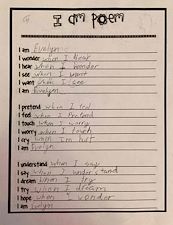 I am poem
I am Evelyn
I wonder when I hear
I hear when I wonder
I see when I want
I want when I see
I am Evelyn
I pretend when I feel
I feel when I Pretend
I touch when I worry
I worry when I touch
I cry when I'm hurt
I am Evelyn
I understand when I say
I say when I understand
I dream when I try
I try when I dream
I hope when I wonder
I am Evelyn